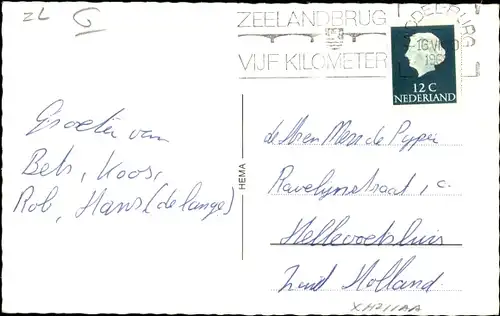 ZL G
ZEELANDBRUG
VIJF KILOMETER
12 C
NEDERLAND
Groeten van
Bets, Koos,
Rob, Hans (de lange)
HEMA
de Hr en Mevr de Pijper
Ravelijnstraat 1, c.
Hellevoetsluis
Zuid Holland.